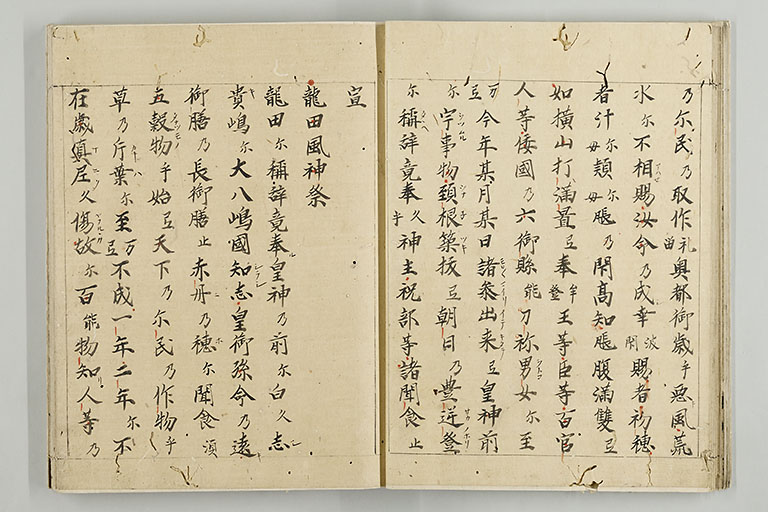 乃尓民乃取作礼留奥都御歳乎悪風荒
水尓不相賜汝命乃成幸波閇賜者初穂
者汁尓母頴尓母𤭖乃閇高知𤭖腹満雙弖
如横山打満置弖奉牟登王等臣等百官
人等倭國乃六御縣能刀祢男女尓至
万弖今年某月某日諸参出来弖皇神前
尓宇事物頚根築抜弖朝日乃豊逆登
尓稱辞竟奉久乎神主祝部等諸聞食止
宣
龍田風神祭
龍田尓稱辞竟奉皇神乃前尓白久志
貴嶋尓大八嶋國知志皇御孫命乃遠
御膳乃長御膳止赤丹乃穂尓聞食須
五穀物乎始弖天下乃尓民乃作物乎
草乃片葉尓至万弖不成一年二年尓不
在歳真尼久傷故尓百能物知人等乃